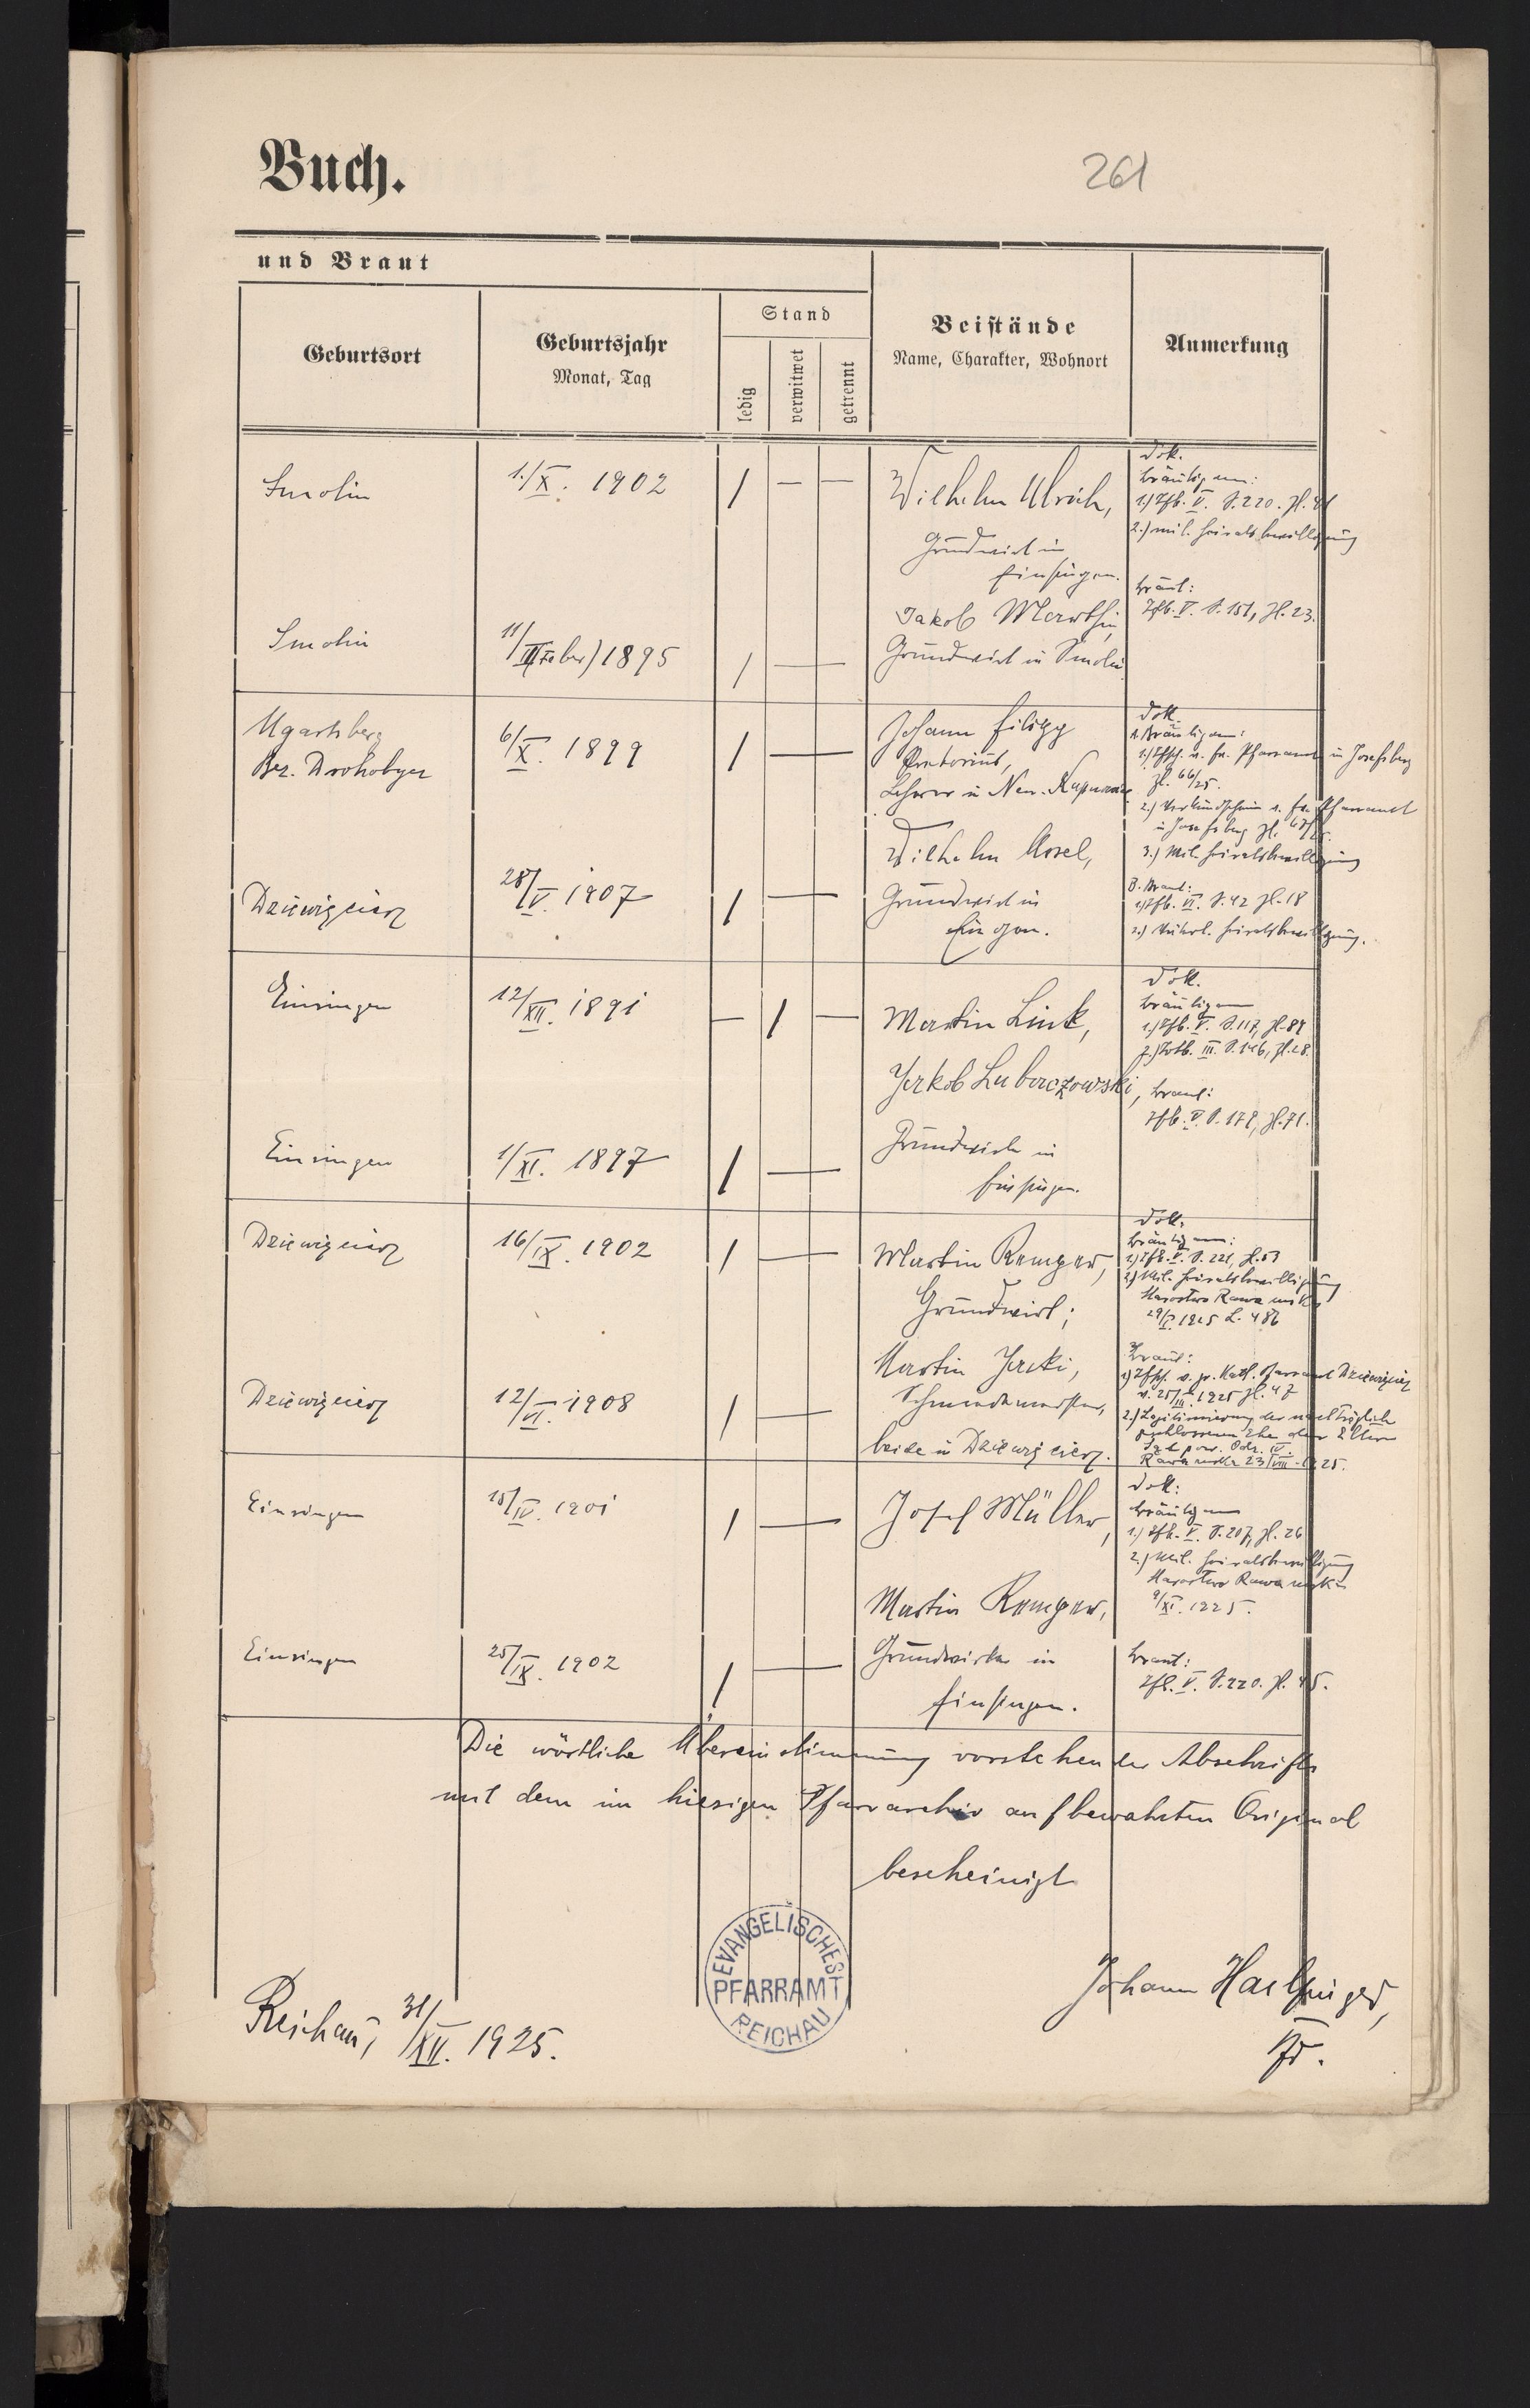 Buch.
261
und Braut
Geburtsort
Geburtsjahr
Monat, Tag
Stand
ledig
verwitwet
getrennt
Beistände
Name, Charakter, Wohnort
Anmerkung
Smolin
1./X. 1902
/ — —
Wilhelm Ulrich,
Grundwirt in
Einsingen.
Dok.
Bräutigam:
2.) mil. Heiratsbewilligung
Smolin
11/II (Feber) 1895
/ —
Jakob
Grundwirt in Smolin
Braut:
Tfb. V. S. 151, Zl. 23.
Ugartsberg
Bez. Drohobycz
6/X. 1899
/ —
Johann Filipp
Pretorius,
Lehrer in Neu-
Dok.
1. Bräutigam:
1.) Tfsch. v. ev. Pfarramt in Josefsberg
Zl. 66/25.
2.) Verkündschein v. ev. Pfarramt
in Josefsberg Zl.
3.) Mil. Heiratsbewilligung
Dziewięcierz
28/V. 1907
/ —
Wilhelm
Grundwirt in
B. Braut:
1.) Tfb. VI. S. 42 Zl. 18
2.) Väterl. Heiratsbewilligung.
Einsingen
12/XII. 1891
— / —
Martin Link,
Dok.
Bräutigam
1.) Tfb. V. S. 117, Zl. 89
2.) Totb. III. S. 146, Zl. 28.
Einsingen
1/XI. 1897
/ —
Jakob
Grundwirte in
Einsingen.
Braut:
Tfb. V. S. 179, Zl. 71.
Dziewięcierz
16/IX. 1902
/ —
MartinRemper,
Grundwirt;
Dok.
Bräutigam:
1.) Tfb. V. S. 221, Zl. 53
2.) Mil. Heiratsbewilligung
Starostwo Rawa ruska
1925 L. 486
Dziewięcierz
12/VI. 1908
/ —
Martin Jacki,
Schmiedemeister,
beide in Dziewięcierz.
Braut:
1.) Tfsch. v. gr. kath. Pfarramt Dziewięcierz
v. 25/III. 1925 Zl. 47
2.) Legitimierung der nachträglich
geschlossenen Ehe der Eltern
Rawa ruska 23/VIII. 1925.
Einsingen
15/IV. 1901
/ —
Josef Müller,
Dok:
Bräutigam
1.) Tfb. V. S. 207, Zl. 26
2.) Mil. Heiratsbewilligung
Starostwo Rawa ruska
9/XI. 1925.
Einsingen
25/IX. 1902
/ —
Martin Remper,
Grundwirte in
Einsingen.
Braut:
Tfb. V. S. 220. Zl. 45.
Die wörtliche Übereinstimmung vorstehender Abschrift
mit dem im hiesigen Pfarrarchiv aufbewahrten Original
bescheinigt
EVANGELISCHES
PFARRAMT
REICHAU
Reichau, 31/XII. 1925.
Johann